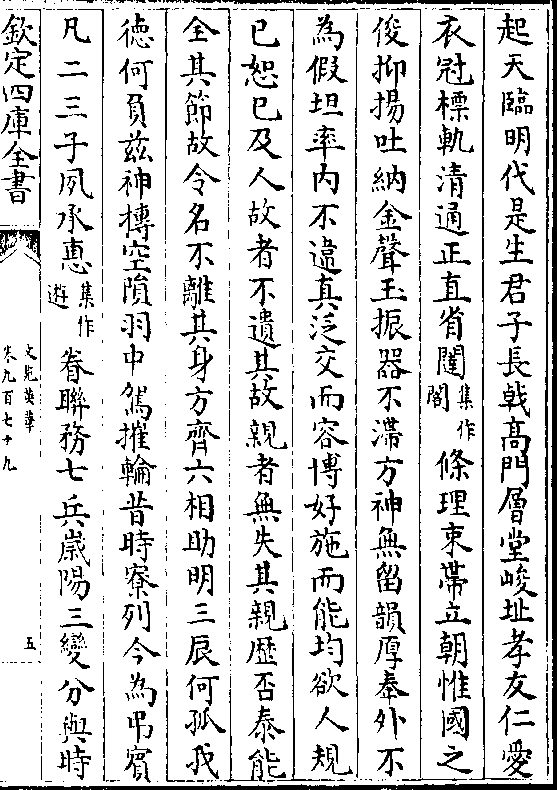 起天臨明代是生君子長戟高門層堂峻址孝友仁愛
衣冠標軌清通正直省闥集作閤條理束帶立朝惟國之
俊抑揚吐納金聲玉振器不滯方神無留韻厚奉外不
為假坦率内不違真泛交而容博好施而能均欲人規
已恕已及人故者不遺其故親者無失其親歴否泰能
全其節故令名不離其身方齊六相助明三辰何孤我
徳何負兹神摶空隕羽中駕摧輪昔時寮列今為弔賓
凡二三子夙承惠集作遊眷聯務七兵嵗陽三變分與時
欽定四庫全書
文苑英華
卷九百七十九
五